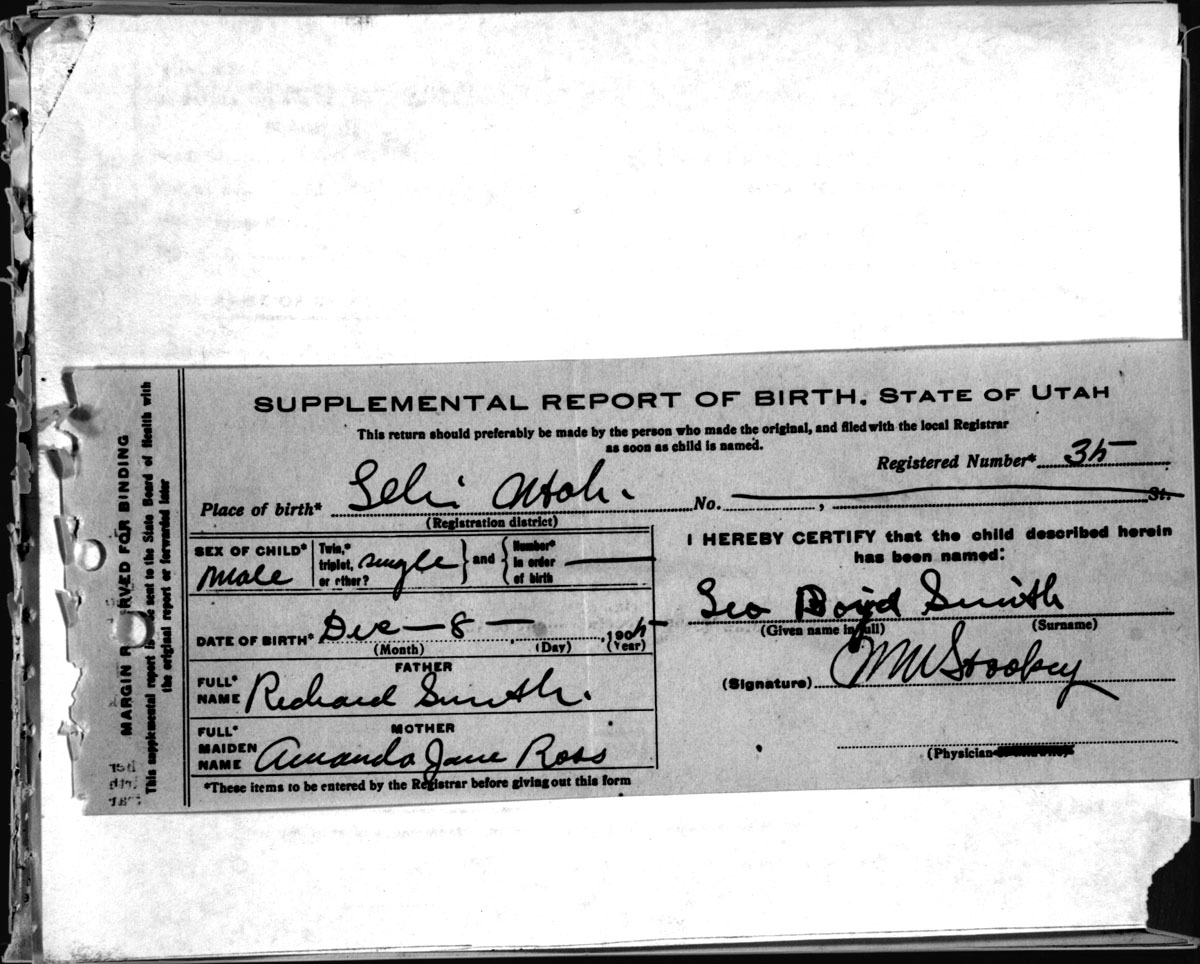 SUPPLEMENTAL REPORT OF BIRTH. STATE OF UTAH
This return should preferably be made by the person who made the original, and filed with the local Registrar
as soon as child is named.
Registered Number* 35
Place of birth* Lehi Utah. No. , St.
(Registration district)
SEX OF CHILD* Male
Twin,* triplet, or other? single } and { Number* in order of birth
DATE OF BIRTH* Dec — 8 — , , 1905
(Month) (Day) (Year)
FATHER
FULL* NAME Richard Smith.
MOTHER
FULL* MAIDEN NAME Amanda Jane Ross
*These items to be entered by the Registrar before giving out this form
I HEREBY CERTIFY that the child described herein
has been named:
Boyd Smith
(Given name in full) (Surname)
(Signature) Stookey
(Physician
MARGIN RESERVED FOR BINDING
This supplemental report is sent to the State Board of Health with
the original report or forwarded later